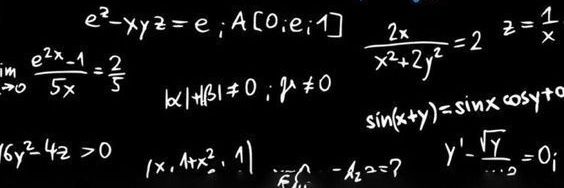 e^z-xyz=e; A[0;e;1]
2x/(x²+2y²)=2
z=1/x
(e^2x-1)/5x=2/5
|α|+|β|≠0; γ≠0
sin(x+y)=sinx cosy+
6y²-4z>0
(x, 1+x², 1)
=?
y'-√y
=0;